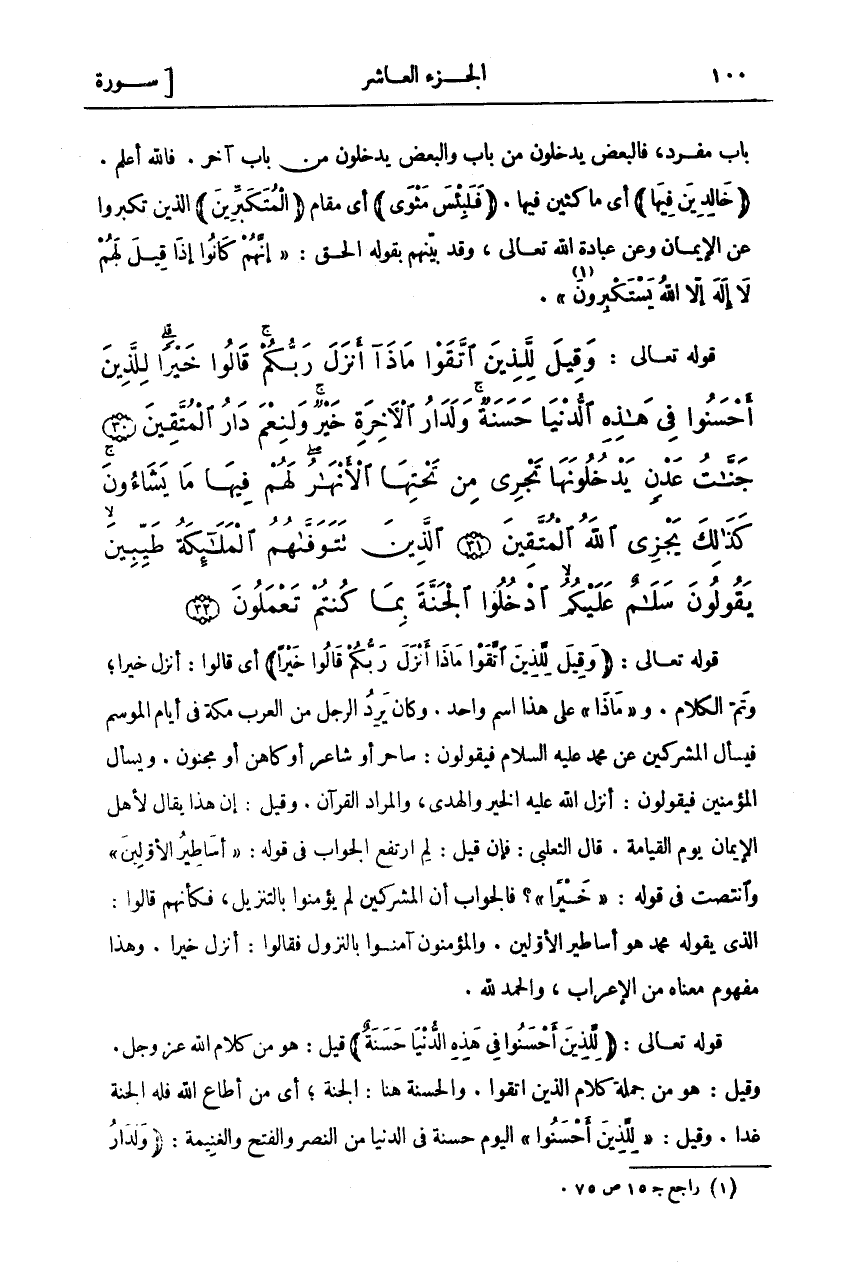 ١٠٠ الجـــزء العـاشر [ ســـورة
باب مفـرد، فالبعض يدخلون من باب والبعض يدخلون من باب آخر . فالله أعلم .
﴿خَالِدِينَ فِيهَا﴾ أى ماكثين فيها . ﴿فَلَبِئْسَ مَثْوَى﴾ أى مقام ﴿الْمُتَكَبِّرِينَ﴾ الذين تكبروا
عن الإيمـان وعن عبادة الله تعـالى ، وقد بيّنهم بقوله الحـق : « إنَّهُمْ كَانُوا إذَا قِيـلَ لَهُمْ
لَا إِلَهَ إلَّا اللهُ يَسْتَكْبِرُونَ(١) » .
قوله تعـالى : وَقِيلَ لِلَّذِينَ ٱتَّقَوْا مَاذَآ أَنزَلَ رَبُّكُمْۚ قَالُوا خَيْرًاۗ لِلَّذِينَ
أَحْسَنُوا فِى هَـٰذِهِ ٱلدُّنْيَا حَسَنَةٌۚ وَلَدَارُ ٱلْآخِرَةِ خَيْرٌۚ وَلَنِعْمَ دَارُ ٱلْمُتَّقِينَ ٣٠
جَنَّـٰتُ عَدْنٍ يَدْخُلُونَهَا تَجْرِى مِن تَحْتِهَا ٱلْأَنْهَـٰرُۖ لَهُمْ فِيهَـا مَا يَشَاءُونَۚ
كَذَٰلِكَ يَجْزِى ٱللَّهُ ٱلْمُتَّقِينَ ٣١ ٱلَّذِينَ تَتَوَفَّىٰهُمُ ٱلْمَلَـٰٓئِكَةُ طَيِّبِينَۙ
يَقُولُونَ سَلَـٰمٌ عَلَيْكُمُۙ ٱدْخُلُوا ٱلْجَنَّةَ بِمَـا كُنتُمْ تَعْمَلُونَ ٣٢
قوله تعـالى : ﴿وَقِيلَ لِلَّذِينَ ٱتَّقَوْا مَاذَا أَنْزَلَ رَبُّكُمْ قَالُوا خَيْرًا﴾ أى قالوا : أنزل خيرا؛
وتمّ الكلام . و « مَاذَا » على هذا اسم واحد . وكان يَرِدُ الرجل من العرب مكة فى أيام الموسم
فيسأل المشركين عن محمد عليه السلام فيقولون : ساحر أو شاعر أو كاهن أو مجنون . ويسأل
المؤمنين فيقولون : أنزل الله عليه الخير والهدى، والمراد القرآن . وقيل : إن هذا يقال لأهل
الإيمان يوم القيامة . قال الثعلبى : فإن قيل : لِم ارتفع الجواب فى قوله : « أَسَاطِيرُ الأَوَّلِينَ»
وٱنتصت فى قوله : « خَـيْرًا »؟ فالجواب أن المشركين لم يؤمنوا بالتنزيل، فكأنهم قالوا :
الذى يقوله محمد هو أساطير الأوّلين . والمؤمنون آمنـوا بالنزول فقالوا : أنزل خيرا . وهذا
مفهوم معناه من الإعراب ، والحمد لله .
قوله تعـالى : ﴿لِلَّذِينَ أَحْسَنُوا فِى هَذِهِ الدُّنْيَا حَسَنَةٌ﴾ قيل : هو من كلام الله عز وجل .
وقيل : هو من جملة كلام الذين اتقوا . والحسنة هنا : الجنة ؛ أى من أطاع الله فله الجنة
غدا . وقيل : « لِلَّذِينَ أَحْسَنُوا » اليوم حسنة فى الدنيا من النصر والفتح والغنيمة : ﴿وَلَدَارُ
(١) راجع جـ ١٥ ص ٧٥ .